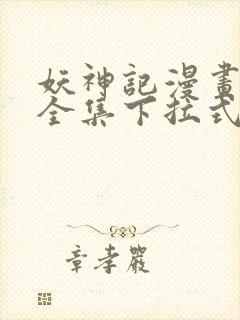 妖神記漫畫
全集下拉式
章孝嚴